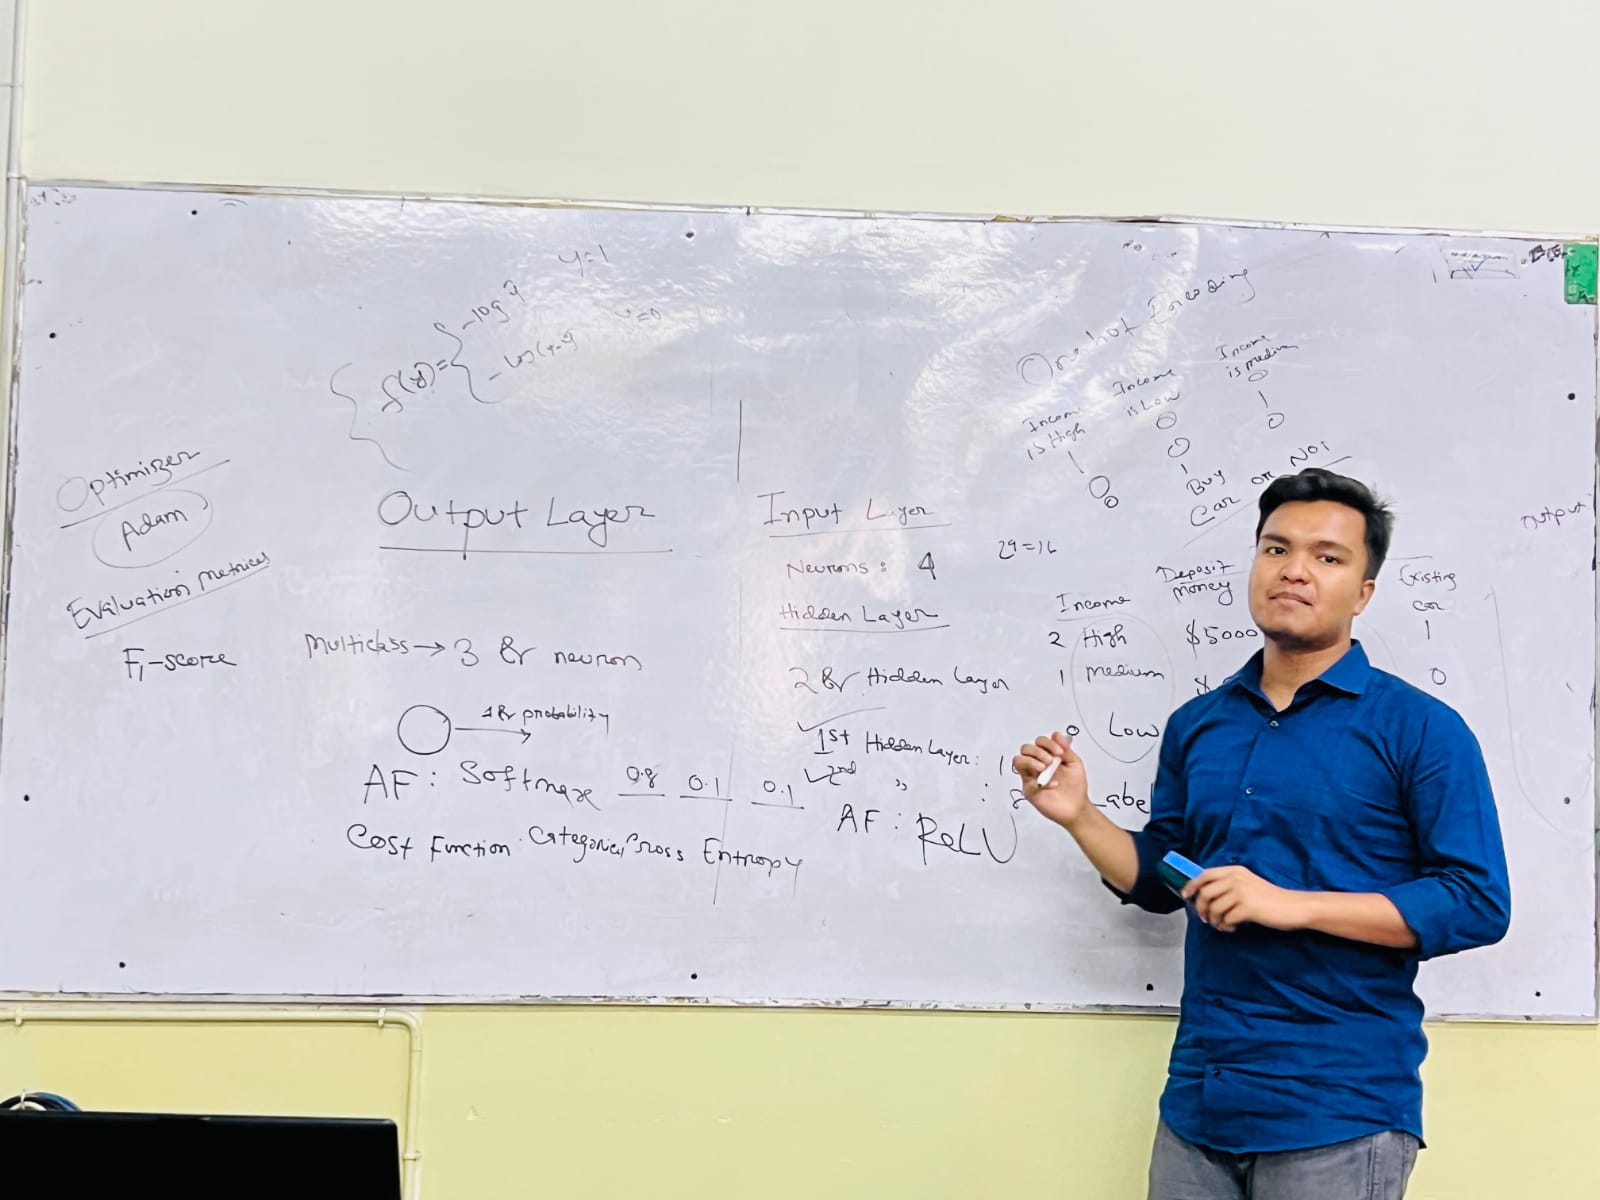 y=1
f(y)= { -log ŷ
y=0
Optimizer
Adam
Evaluation Metrices
F1-score
Output Layer
Multiclass → 3 &r neuron
probability
AF: Softmax 0.8 0.1 0.1
Cost Function: Cross Entropy
Input Layer
Neurons: 4
2^4=16
Hidden Layer
2 &r Hidden Layer
1st Hidden Layer:
2nd " :
AF: ReLU
One hot Encoding
Income is High
Income is Low
Income is medium
1 0 0
0 0 1
0 1 0
Buy
Car or Not
Income
Deposit money
Existing car
Output
2 High $5000 1
1 Medium $ 0
0 Low
Label